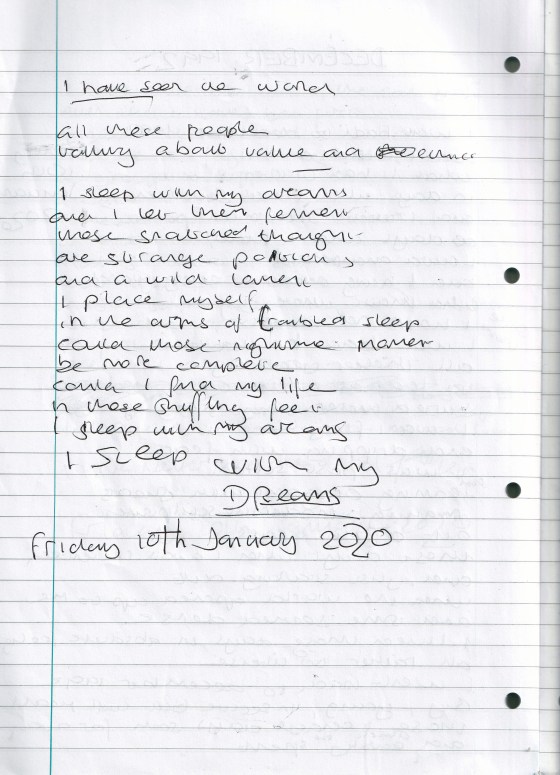 I have seen the world
all these people
about value and
I sleep with my dreams
and I let them ferment
those snatched thoughts
are strange potions
and a wild lament
I place myself
in the arms of troubled sleep
could those nighttime moments
be more complete
could I find my life
in those shuffling feet
I sleep with my dreams
I SLEEP with my
DReams
Friday 10th January 2020